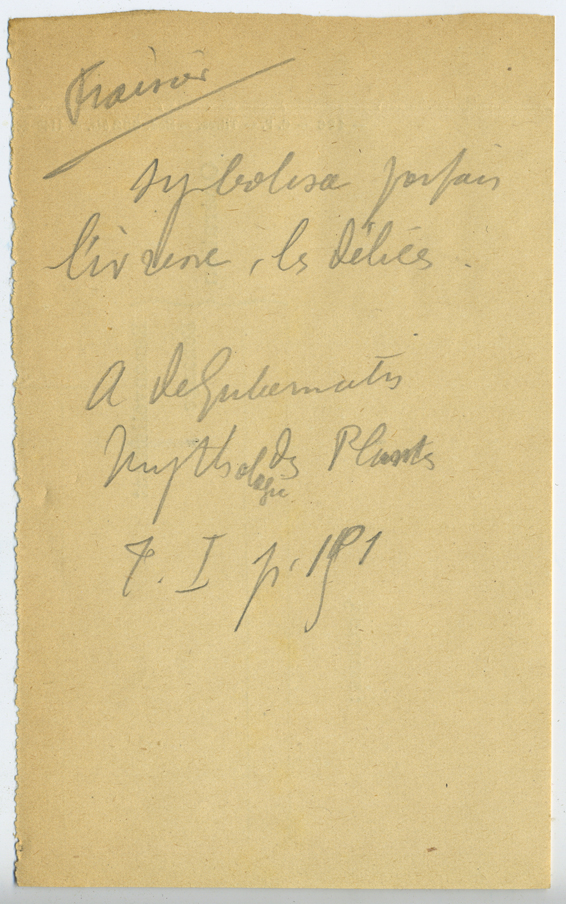 Fraisier
symbolise parfois
l'ivresse, les délices.
A de Gubernatis
Mythologie des Plantes
T. I p.